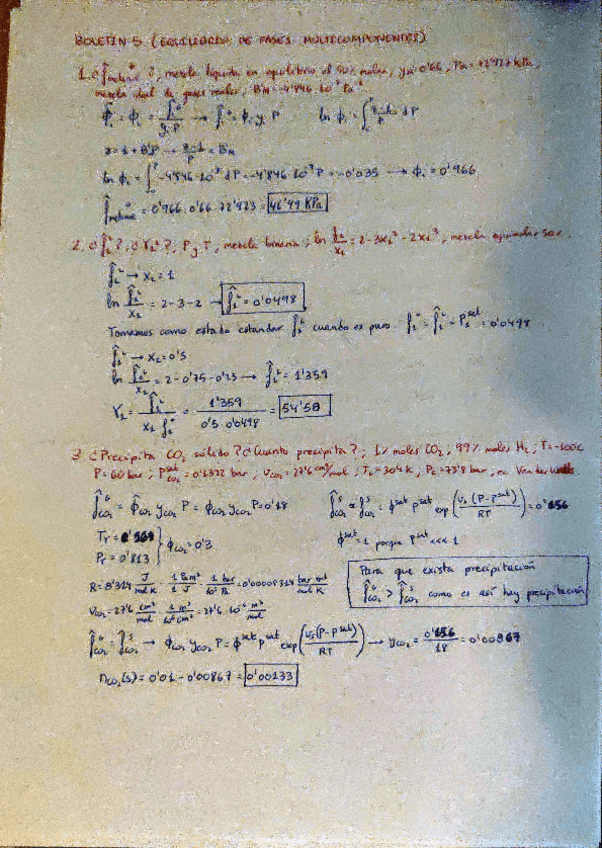 BOLETIN 5 (EQUILIBRIO DE FASES MULTICOMPONENTES)
1. ¿ f̂ ?, mezcla líquida en equilibrio al 50% molar, y = 0'66, P = 72'923 kPa,
mezcla ideal de gases reales, B = -4'846·10⁻⁷ Pa⁻¹
φ̂ᵢ = φᵢ = f̂ᵢ / yᵢP → f̂ᵢ = φᵢ yᵢ P ln φᵢ = ∫ z-1/P dP
z = 1 + B'P → z-1/P = B
ln φᵢ = ∫₀ᴾ -4'846·10⁻⁷ dP = -4'846·10⁻⁷ P = -0'035 → φᵢ = 0'966
f̂ = 0'966 · 0'66 · 72'923 = 46'49 KPa
P y T, mezcla binaria; ln = 2-3x₁²-2x₁³, mezcla
f̂₁ᴸ → x₁ = 1
ln f̂₁ᴸ/x₁ = 2-3-2 → f̂₁ᴸ = 0'0498
Tomamos como estado estandar f₁ᴸ cuando es puro. = P₁ˢᵃᵗ = 0'0498
f̂₁ᴸ → x₁ = 0'5
ln f̂₁ᴸ/x₁ = 2-0'75-0'25 → f̂₁ᴸ = 1'359
γ₁ = f̂₁ᴸ / x₁ f₁ᴸ = 1'359 / 0'5·0'0498 = 54'58
3. ¿Precipita CO₂ sólido? ¿Cuanto precipita?; 1% moles CO₂, 99% moles H₂, T = -100ºC
P = 60 bar; Pˢᵃᵗ CO₂ = 0'1392 bar; v CO₂ = 27'6 cm³/mol; Tc = 304 K, Pc = 73'8 bar, ec. Van der Waals
f̂ᴳ CO₂ = φ̂ CO₂ y CO₂ P = φ CO₂ y CO₂ P = 0'18 f̂ˢ CO₂ = fˢ CO₂ = φˢᵃᵗ Pˢᵃᵗ exp(vₛ(P-Pˢᵃᵗ)/RT) = 0'156
Tr = 0'569
Pr = 0'813 } φ CO₂ = 0'3 φˢᵃᵗ = 1 porque Pˢᵃᵗ <<< 1
R = 8'314 J/mol K · 1 Pa m³/1 J · 1 bar/10⁵ Pa = 0'00008314 bar m³/mol K
Para que exista precipitación
f̂ᴳ CO₂ > f̂ˢ CO₂ como es así hay precipitación
v CO₂ = 27'6 cm³/mol · 1 m³/10⁶ cm³ = 27'6·10⁻⁶ m³/mol
f̂ᴳ CO₂ = f̂ˢ CO₂ → φ CO₂ y CO₂ P = φˢᵃᵗ Pˢᵃᵗ exp(vₛ(P-Pˢᵃᵗ)/RT) → y CO₂ = 0'156/18 = 0'00867
n CO₂ (s) = 0'01 - 0'00867 = 0'00133